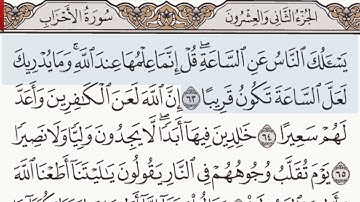 الجزء الثاني والعشرون سورة الأحزاب
يَسْـَٔلُكَ ٱلنَّاسُ عَنِ ٱلسَّاعَةِۖ قُلْ إِنَّمَا عِلْمُهَا عِندَ ٱللَّهِۚ وَمَا يُدْرِيكَ
لَعَلَّ ٱلسَّاعَةَ تَكُونُ قَرِيبًا ٦٣ إِنَّ ٱللَّهَ لَعَنَ ٱلْكَٰفِرِينَ وَأَعَدَّ
لَهُمْ سَعِيرًا ٦٤ خَٰلِدِينَ فِيهَآ أَبَدًاۖ لَّا يَجِدُونَ وَلِيًّا وَلَا نَصِيرًا ٦٥
يَوْمَ تُقَلَّبُ وُجُوهُهُمْ فِي ٱلنَّارِ يَقُولُونَ يَٰلَيْتَنَآ أَطَعْنَا ٱللَّهَ